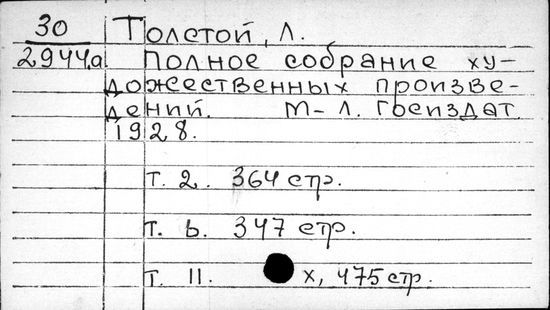 30 Толстой, Л.
2944.а Полное собрание ху-
дожественных произве-
дений. М-Л. Госиздат.
1928.
т. 2. 364 стр.
т. 6. 347 стр.
т. 11. х, 475 стр.